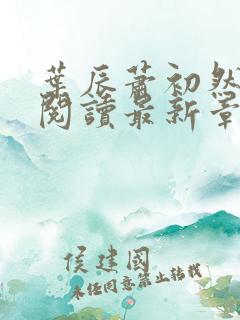 葉辰蕭初然
閱讀最新章
侯建國
未經同意禁止轉載